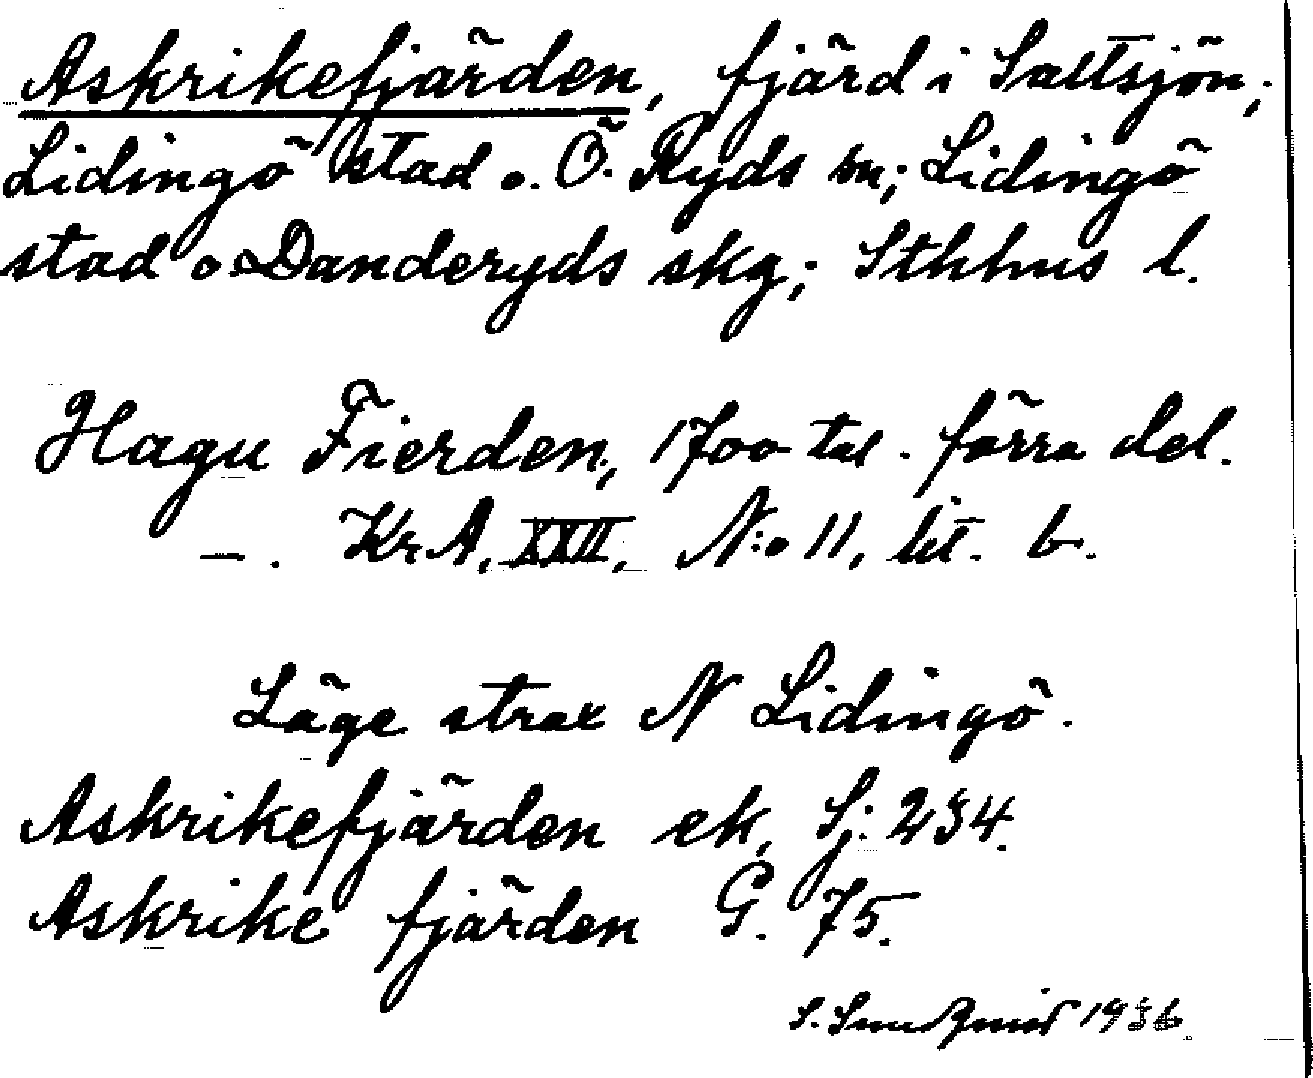 Askrikefjärden, fjärd i Saltsjön;
Lidingö stad o. Ö. Ryds sn; Lidingö
stad o Danderyds skg; Sthhms l.
Hagu Fierden, 1700 tal. förra del.
—. KrA, XXII, N:o 11, lit. b.
Läge strax N Lidingö.
Askrikefjärden ek, Sj: 234.
Askrike fjärden G. 75.
S. 1936